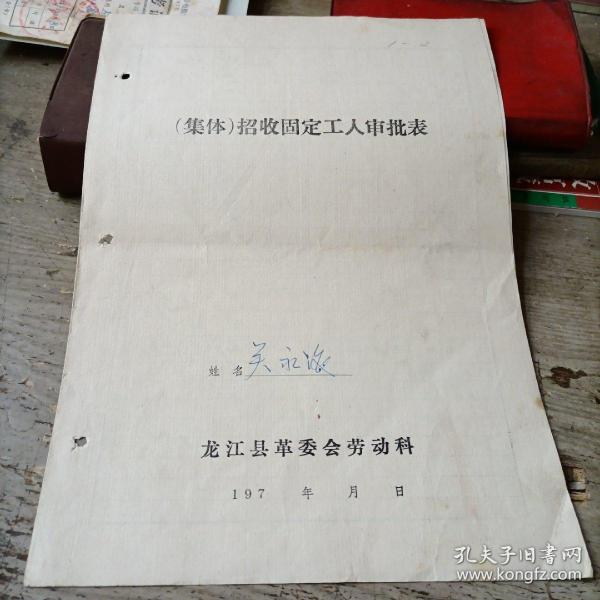 (集体)招收固定工人审批表
姓名 关永
龙江县革委会劳动科
197 年 月 日
孔夫子旧书网
www.kongfz.com